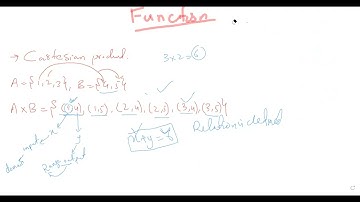 Function
→ Cartesian product. 3×2=6
A={1,2,3}, B={4,5}
A×B={(1,4),(1,5),(2,4),(2,5),(3,4),(3,5)}
Relation is defined
x+y=7
input x y
domain Range output